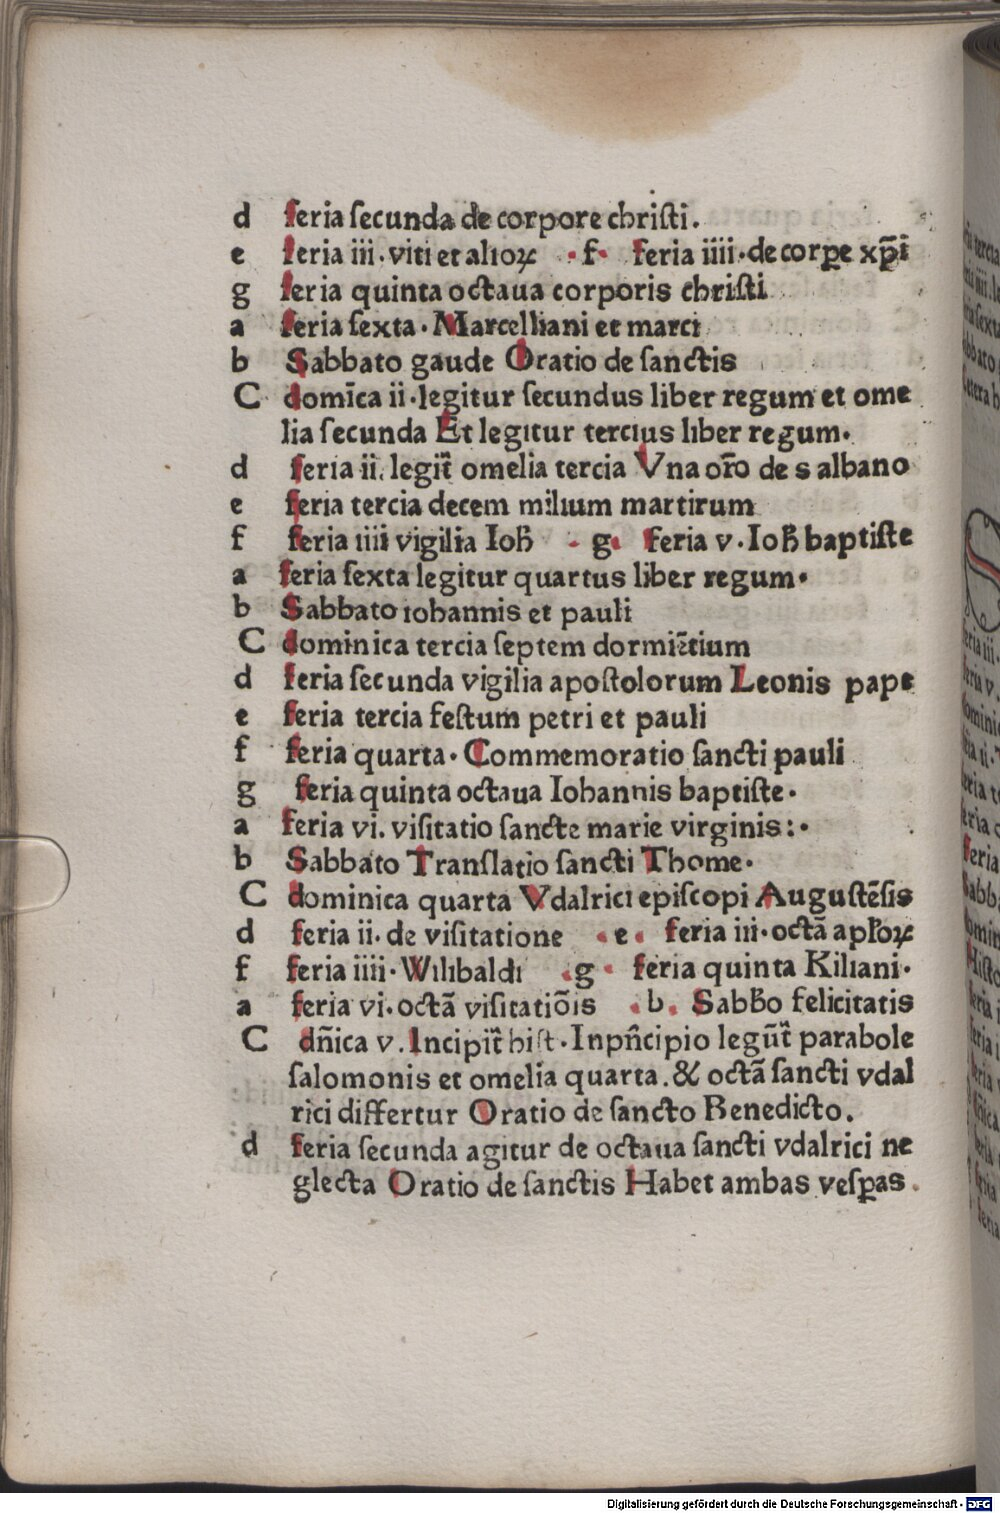 d feria ſecunda de corpore chriſti.
e feria iii. viti et alioꝝ · f · feria iiii · de corꝑe xp̄i
g feria quinta octaua corporis chriſti
a feria ſexta · Marcelliani et marci
b Sabbato gaude Oratio de ſanctis
C domīca ii · legitur ſecundus liber regum et ome
lia ſecunda Et legitur tercius liber regum.
d feria ii. legit᷑ omelia tercia Vna or̄o de s albano
e feria tercia decem milium martirum
f feria iiii vigilia Ioh̄ · g · feria v · Ioh̄ baptiſte
a feria ſexta legitur quartus liber regum ·
b Sabbato iohannis et pauli
C dominica tercia ſeptem dormiētium
d feria ſecunda vigilia apoſtolorum Leonis pape
e feria tercia feſtum petri et pauli
f feria quarta · Commemoratio ſancti pauli
g feria quinta octaua Iohannis baptiſte ·
a feria vi. viſitatio ſancte marie virginis : ·
b Sabbato Tranſlatio ſancti Thome ·
C dominica quarta Vdalrici epiſcopi Auguſtēſis
d feria ii. de viſitatione · e · feria iii · octā apl̄oꝝ
f feria iiii · Wilibaldi · g · feria quinta Kiliani ·
a feria vi · octā viſitatiōis · b · Sabb̄o felicitatis
C dn̄ica v . Incipit᷑ hiſt · In pn̄cipio legūt᷑ parabole
ſalomonis et omelia quarta . & octā ſancti vdal
rici differtur Oratio de ſancto Benedicto .
d feria ſecunda agitur de octaua ſancti vdalrici ne
glecta Oratio de ſanctis Habet ambas veſꝑas .
Digitalisierung gefördert durch die Deutsche Forschungsgemeinschaft - DFG